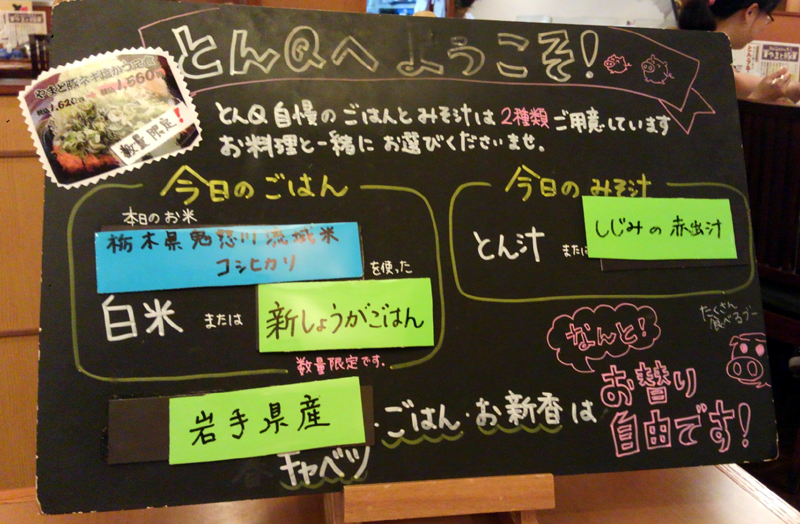 とんQへ ようこそ!
やまと豚ネギ塩かつ定食
1,620 1,560円
数量限定!
とんQ自慢のごはんとみそ汁は2種類ご用意しています
お料理と一緒にお選びくださいませ。
今日のごはん
本日のお米
栃木県鬼怒川流域米
コシヒカリ
を使った
白米 または 新しょうがごはん
数量限定です。
今日のみそ汁
とん汁 または しじみの赤出汁
岩手県産
キャベツ・ごはん・お新香は
なんと!
お替り
自由です!
たくさん
食べるブー